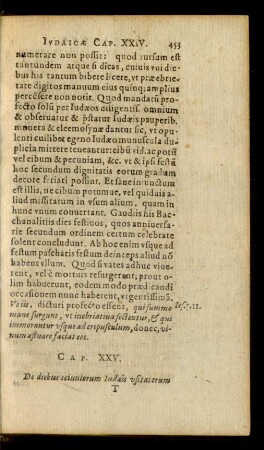 IVDAICÆ CAP. XXIV. 433
numerare non possit: quod rursum est
tantundem atque si dicas, cuiuis vui die-
bus his tantum bibere licere, vt præ ebrie-
tate digitos manuum eius quinq; amplius
percēsere non norit. Quod mandatū pro-
fecto solū per Iudæos diligentiſ. omnium
& obseruatur & pstatur Iudæis pauperib.
moneta & eleemosynæ dantur sic, vt opu-
lenti cuilibet egeno Iudæo munuscula du-
plicia mittere teneantur: cibū vid. ac potū
vel cibum & pecuniam, &c. vt & ipsi festū
hoc secundum dignitatis eorum gradum
decore feriari possint. Et sane iniunctum
est illis, ne cibum potumue, vel quiduis a-
liud missitatum in vsum alium, quam in
hunc vnum conuertant. Gaudiis his Bac-
chanalitiis dies festiuos, quos anniuersa-
rie secundum ordinem certum celebrate
solent concludunt. Ab hoc enim vsque ad
festum paschatis festum deinceps aliud nō
habent vllum. Quod si vates adhuc viue-
rent, vel è mortuis resurgerent, prout o-
lim habuerunt, eodem modo prædicandi
occasionem nunc haberent, vrgentissimā.
Veiis, dicturi profecto essent, qui summo
mane surgunt, vt inebriatiua sectentur, & qui
immorantur vsque ad crepusculum, donec, vi-
num æstuare faciat eos.
CAP. XXV.
De diebus ieiuniorum Iudæis vsitatorum
T